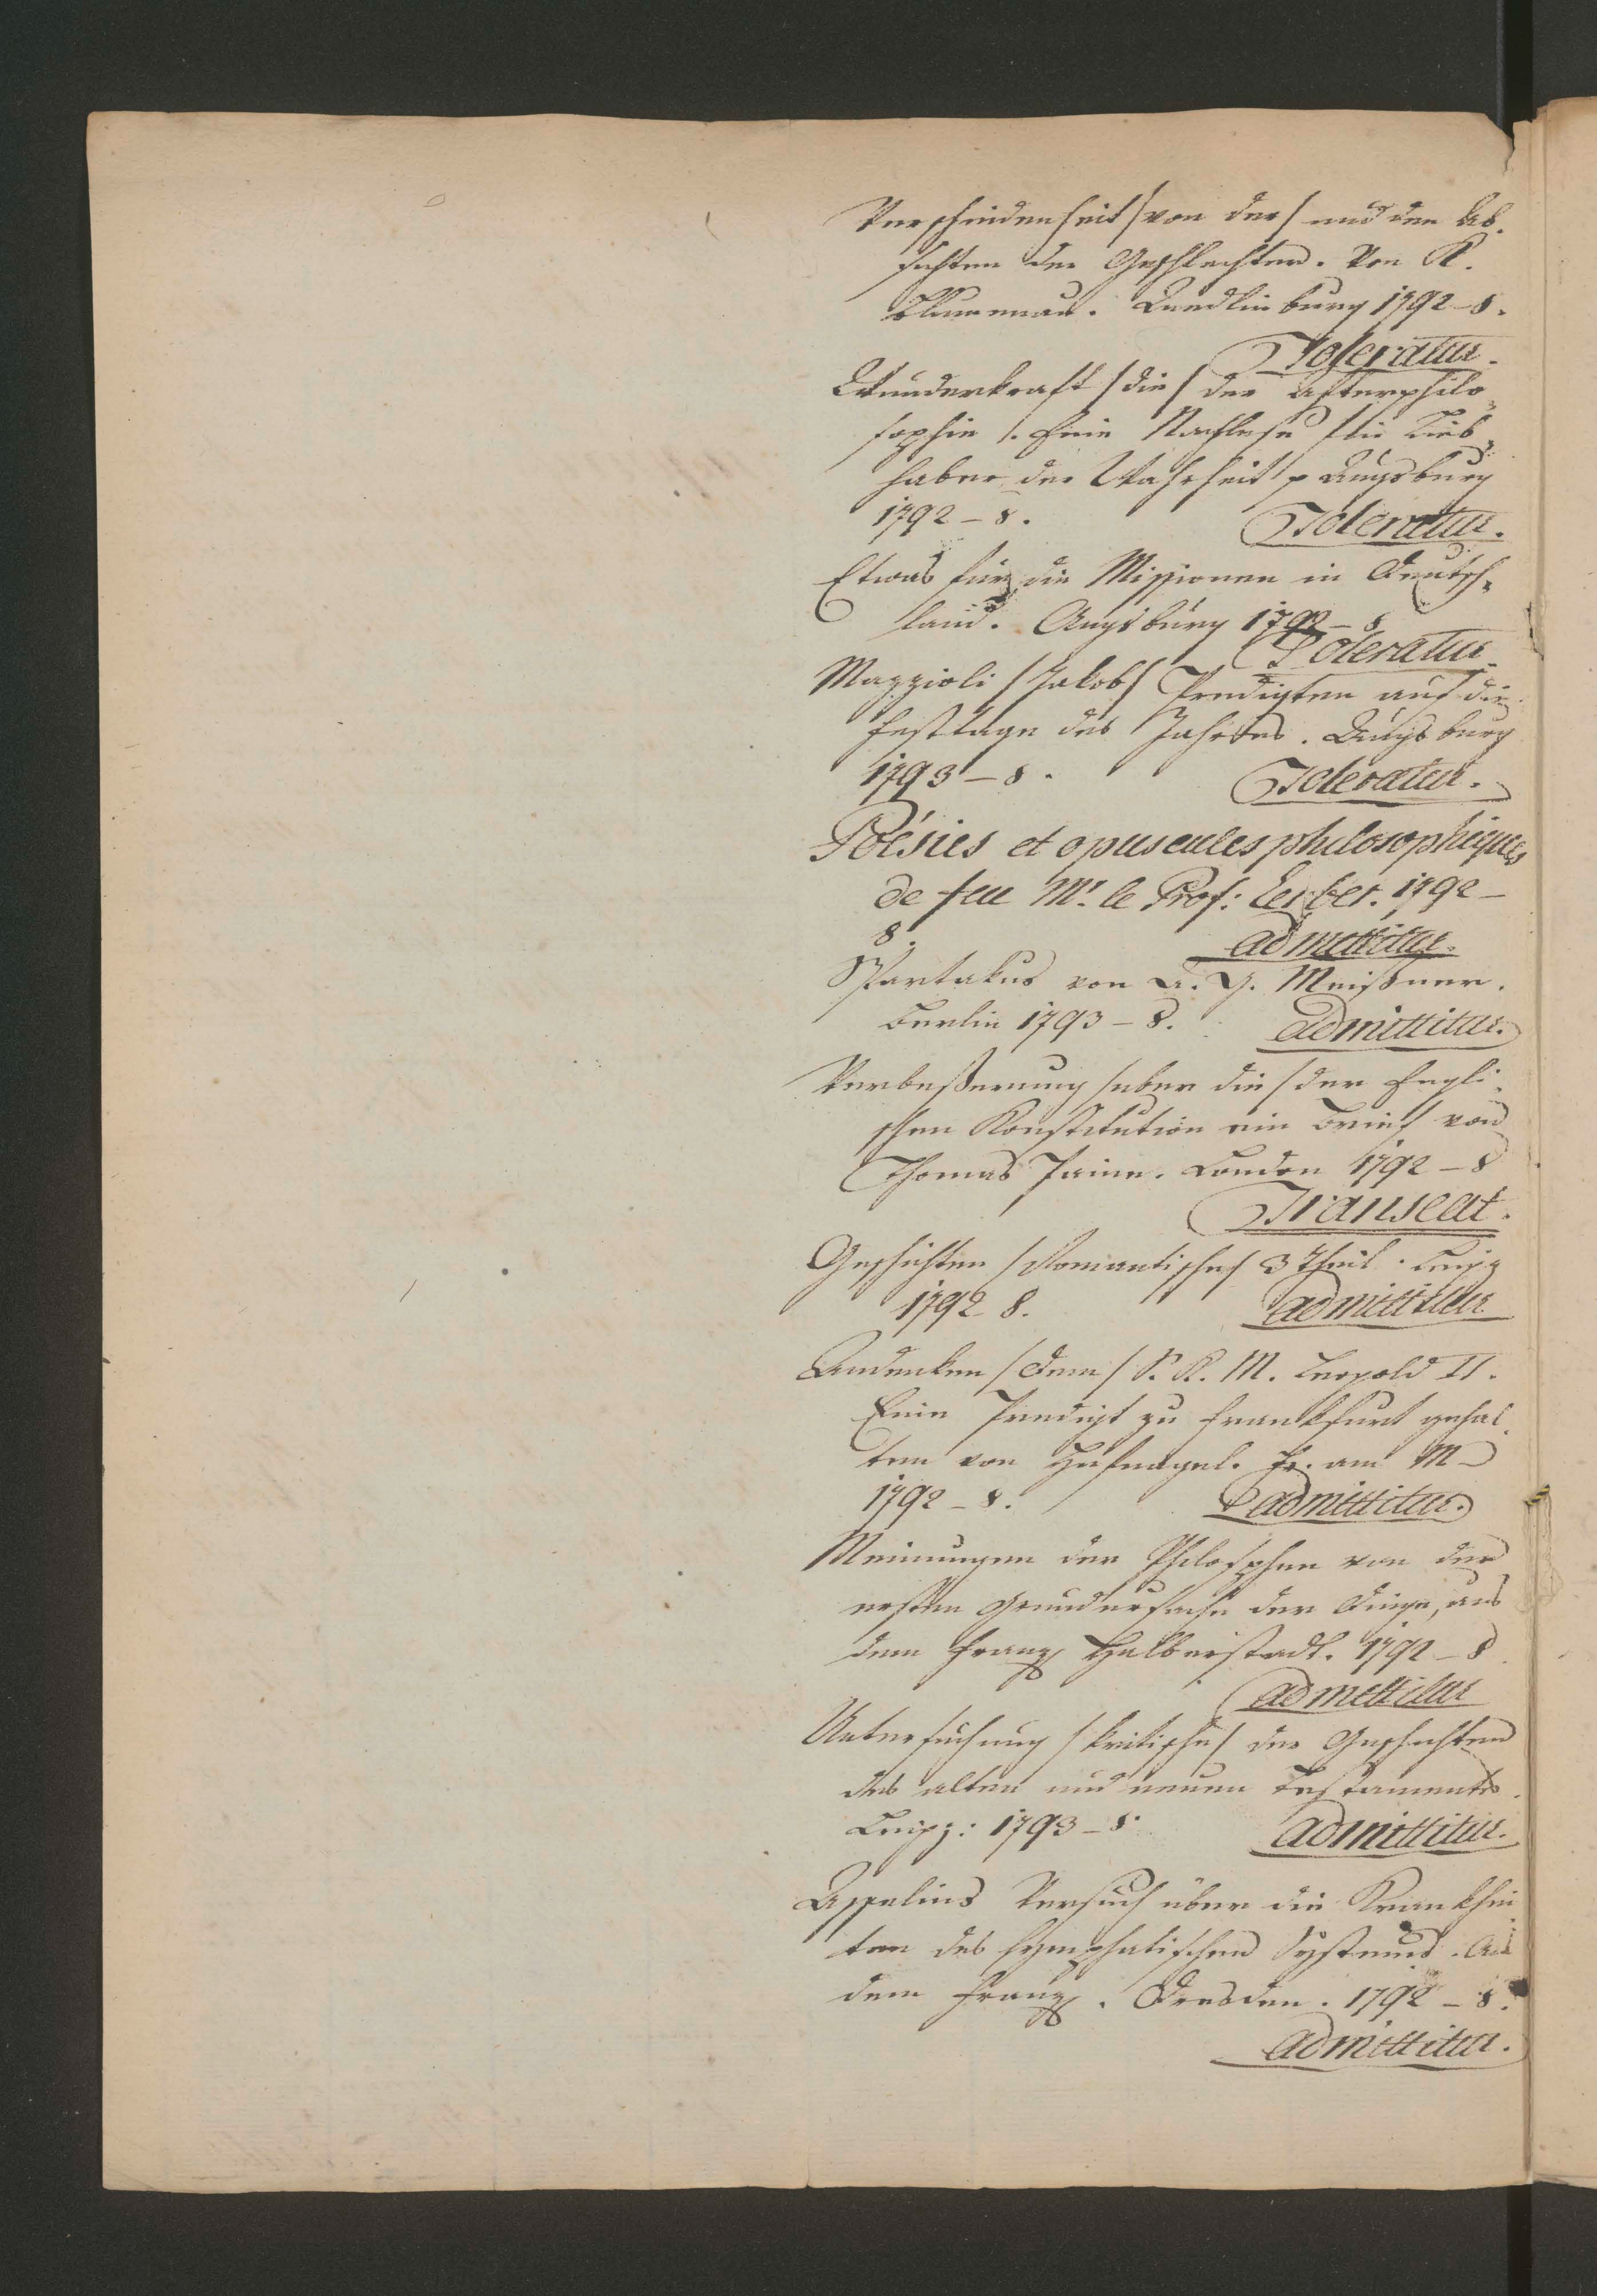 Verschiedenheit /von der/ und den Ab-
sichten der Geschlechter. Von K.
Blumenau. Quedlinburg 1792 – 8.
Toleratur.
Wunderkraft /die/ der Afterphilo-
sophie /. Eine Nachlese für Lieb-
haber der Wahrheit p Augsburg
1792 – 8.
Toleratur.
Etwas für die Missionen in Deutsch-
land. Augsburg 1792 – 8
Toleratur.
Mazzioli /Jakob/ Predigten auf die
Festtage des Jahres. Augsburg
1793 – 8.
Toleratur.
Poésies et opuscules philosophiques
de feu Mr. le Prof: Lerber. 1792 –
8.
admittitur.
Spartakus von A. G. Meißner.
Berlin 1793 – 8.
admittitur.
Verbeßerung /uber die/ der Engli-
schen Konstitution ein Brief von
Thomas Paine. London 1792 – 8
Transeat.
Geschichten /Romantische/ 3 Theil. Leipz
1792 8.
admittitur
Andenken /Dem/ S. K. M. Leopold II.
Eine Predigt zu Frankfurt gehal-
ten von Hufnagel. Fr. am M –
1792 – 8.
admittitur.
Meinungen der Philosophen von der
ersten Grundursache der Dinge, aus
dem Franz Halberstadt. 1792 – 8.
admittitur
Untersuchung /kritische/ der Geschichten
des alten und neuen Testaments.
Leipz: 1793 – 8.
admittitur.
Assalins Versuch über die Krankhei
ten des lymphatischen Systems. Aus
dem Franz. Dresden. 1792 – 8.
admittitur.